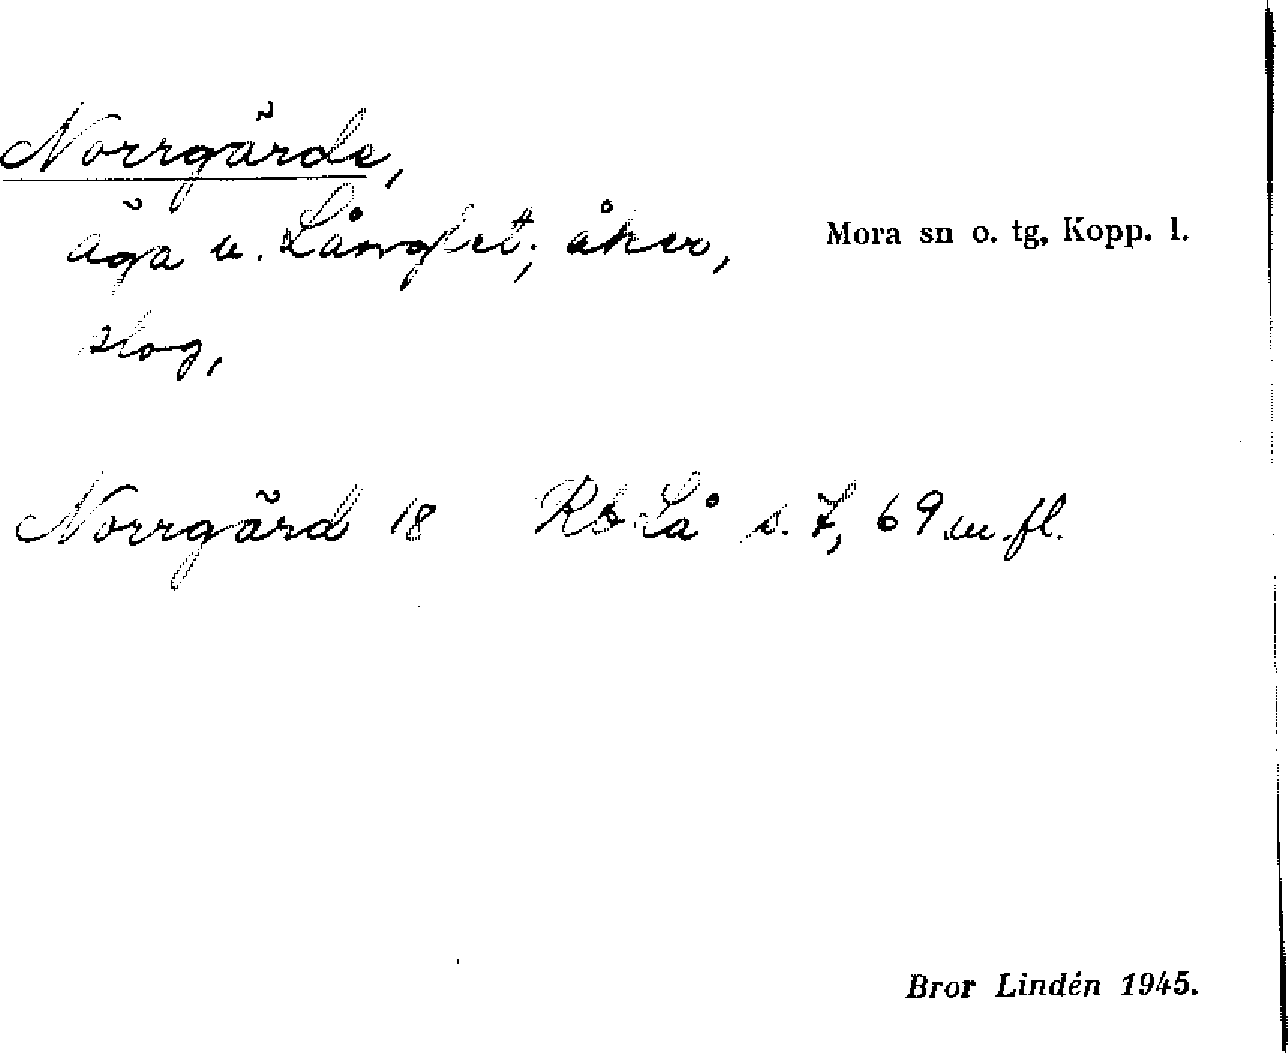 Norrgärde,
äga u. Långlet; åker, Mora sn o. tg, Kopp. l.
slog,
Norrgärd 18 Rb Lå s. 7, 69 m. fl.
Bror Lindén 1945.